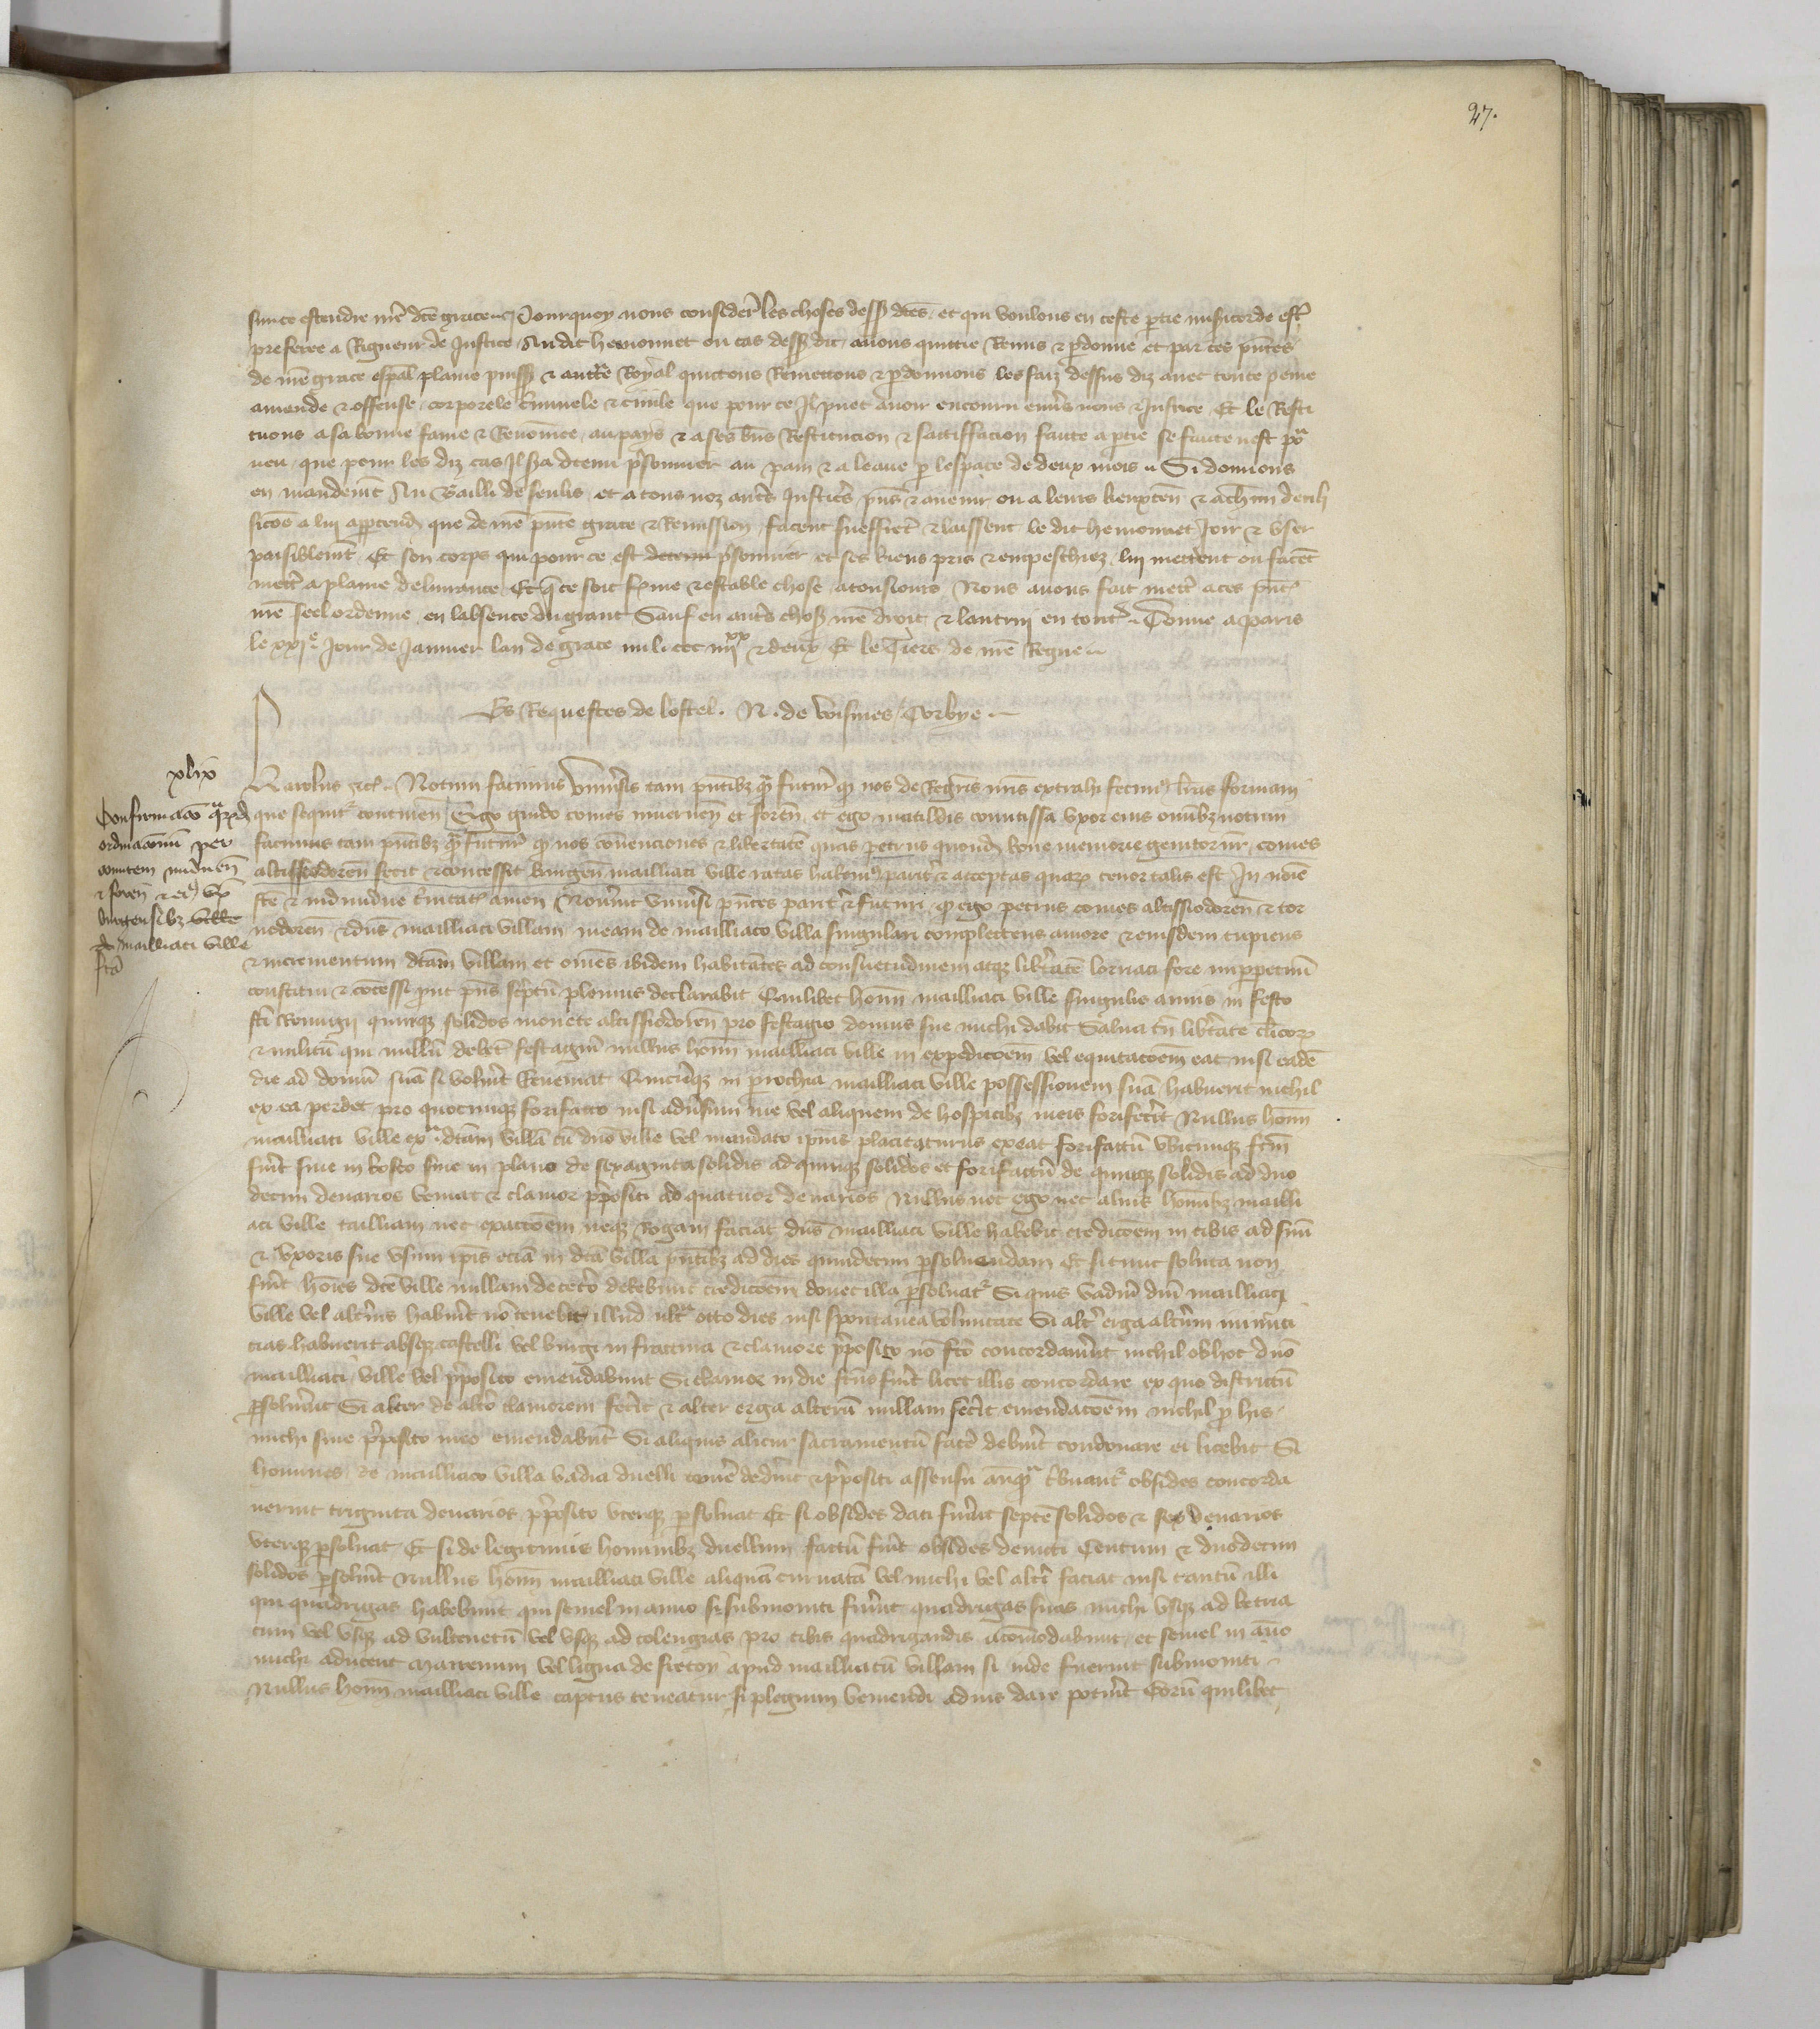 27.
sur ce estendre nr̄e dc̄e grace. Pourquoy nous consideré les choses dess dc̄es, et qui voulons en ceste p̄tie misericorde est̄
preferee a Rigueur de Justice Audit hemonnet ou cas dess dit, auons quittie Remis & p̄donne et par ces pn̄tes
de nr̄e grace esp̄al plaine puiss & auct̄e Royal quictons Remettons & p̄donnons les faiz dessus diz auec toute peine
amende & offense, corporele c̄iminele & ciuile que pour ce Il puet auoir encouru enūs nous & Justice, Et le Resti
tuons a sa bonne fame & Renom̄ee, au pays & a ses bn̄s Restitucion & satiffacion faicte a p̄tie se faicte nest po
ueu, que pour les diz cas Il sera detenu p̄sonnier au pain & a leaue p lespace de deux mois. Si donnons
en mandemt Au Bailli de senlis, et a tous noz aut̄s Justic̄s pn̄s & auenir ou a leurs lieuxten̄ & a ch̄un deulx
sicōe a lui app̄tend̄ que de nr̄e pn̄te grace & Remission, facent sueffret & laissent le dit hemonnet Joir & vser
paisiblemt, Et son corps qui pour ce est detenu p̄sonnier et ses biens pris & empeschiez lui mettent ou facēt
mett̄ a plaine deliurance, Et q̄ ce soit ferme & estable chose a tousiours, Nous auons fait mett̄ a ces pn̄t̄
nr̄e seel ordenne en labsence du grant Sauf en aut̄s choss nr̄e droit & lautruj en tout̄. Donne a Paris
le xxje Jour de Januier lan de grace mil ccc iiijxx & deux Et le Tiers de nr̄e Regne.
Es Requestes de lostel. N. de Voisines, Corbye.
xlix
Confirmac̄o q̄rd̄
ordinac̄onū per
comitem niuern̄
& foren̄ & ei vx̄
burgensibz ville
de mailliaci ville
fc̄a
Karolus &c̄. Notum facimus Vniūsis tam pn̄tibz q̄ futur̄ q nos de Regr̄is nr̄is extrahi fecim l̄ras formam
que sequit̄ continen̄ Ego guido comes niuernen̄ et foren̄, et ego matildis comitissa vxor eius omībz notum
facimus tam pn̄tibz q̄ futur̄ q nos conuenciones & libertatē quas petrus quond̄ bone memorie genitor nr̄, comes
altissiodoren̄ fecit & concessit burgen̄ mailliaci ville ratas habem parit̄ & acceptas quar tenor talis est In noīe
sc̄e & indiuidue t̄nitat̄ amen Nouīnt vniūsi pn̄tes parit̄ & futuri, q ego petrus comes altissiodoren̄ & tor
nodoren̄ & dn̄s mailliaci villam meam de mailliaco villa singulari complectens amore & eiusdem cupiens
& incrementum dc̄am villam et om̄es ibidem habitātes ad consuetudinem atqz lib̄tatē lorriaci fore inpperpetuū
constitui & cōcessi put pn̄s sc̄ptū plenius declarabit Quilibet hoīm mailliaci ville singulis annis in festo
sc̄i Remigij quinqz solidos monete altissiodoren̄ pro festagio domus sue michi dabit salua tn̄ lib̄tate cl̄icor
& militū qui nullū debet festagiū nullus hoīm mailliaci ville in expedic̄oem̄ vel equitac̄oem̄ eat nisi eadē
die ad domū suā si volūit Reueniat Quicūqz in p̄rochia mailliaci ville possessionem suā habuerit nichil
ex ea perdet pro quocunqz forifacto nisi adūsum me vel aliquem de hospitibz meis forifecīt Nullus hoīm
mailliaci ville ext̄ dc̄am villā cū dn̄o ville vel mandato ipius placitaturus exeat forifactū vbicunqz fc̄m
fūit siue in bosco siue in plano de sexaginta solidis ad quinqz solidos et forifactū de quinqz solidis ad duo
decim denarios veniat & clamor p̄positi ad quatuor denarios nullus nec ego nec alius hoībz mailli
aci ville talliam nec exacc̄oem̄ neqz Rogam faciat dn̄s mailliaci ville habebit credic̄oem̄ in cibis ad suū
& vxoris sue vsum ipis eciā in dc̄a villa pn̄tibz ad dies quindecim p̄soluendam Et si tunc soluta non
fūit hoīes dc̄e ville nullam de cet̄o debebunt credic̄oem̄ donec illa p̄soluat̄ Si quis vadiū dn̄i mailliaci
ville vel alt̄ius habūit nō tenebit illud ult̄ octo dies nisi spontanea voluntate Si alt̄ erga alt̄um inimici
cias habuerit absqz castelli vel burgi infractura & clamore p̄posito nō fc̄o concordaūint nichil ob hoc dn̄o
mailliaci ville vel p̄posito emendabunt Si clamor inde fc̄us fūit licet illis concordare ex quo districtū
p̄solūint Si alter de alt̄o clamorem fecīt & alter erga alterū nullam fecīt emendac̄oem̄ nichil p his
michi siue p̄posito meo emendabūt Si aliquis alicui sacramentū fac̄e debūit condonare ei licebit Si
homines de mailliaco villa vadia duelli temē dedīnt & p̄positi assensu antq̄ t̄buant̄ obsides concorda
uerint triginta denarios p̄posito vterqz p̄soluat Et si obsides dati fūint septē solidos & sex denarios
vterqz p̄soluat Et si de legitimis hominibz duellum factū fūit obsides deuicti Centum & duodecim
solidos p̄solūit Nullus hoīm mailliaci ville aliquā curuatā vel michi vel alt̄i faciat nisi tantū illi
qui quadrigas habebunt qui semel in anno si submoniti fūint quadrigas suas michi vsqz ad betria
cum vel vsqz ad vultenetū vel vsqz ad colengias pro cibis quadrigandis acōmodabunt, et semel in an̄o
michi aducent marrenum vel ligna de fretoy apud mailliacū villam si inde fuerint submoniti
Nullus hoīm mailliaci ville captus teneatur si plegium veniendi ad ius dare potūit Eorū quilibet